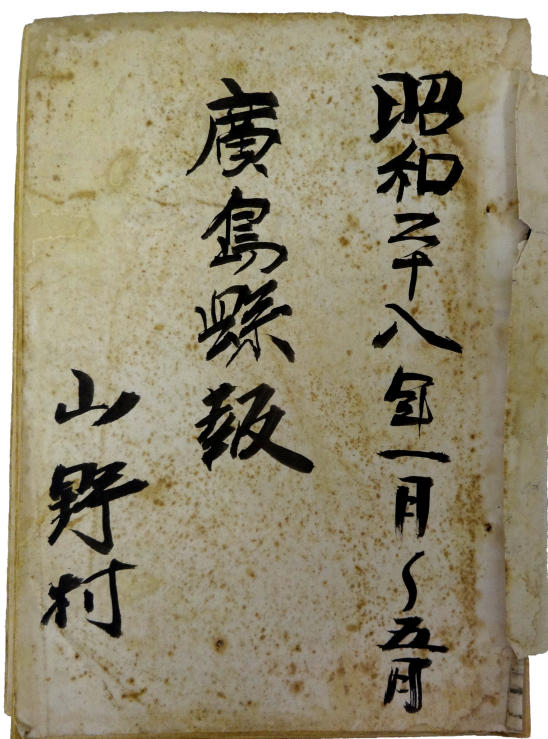 昭和二十八年一月〜五月
廣島縣報
山野村